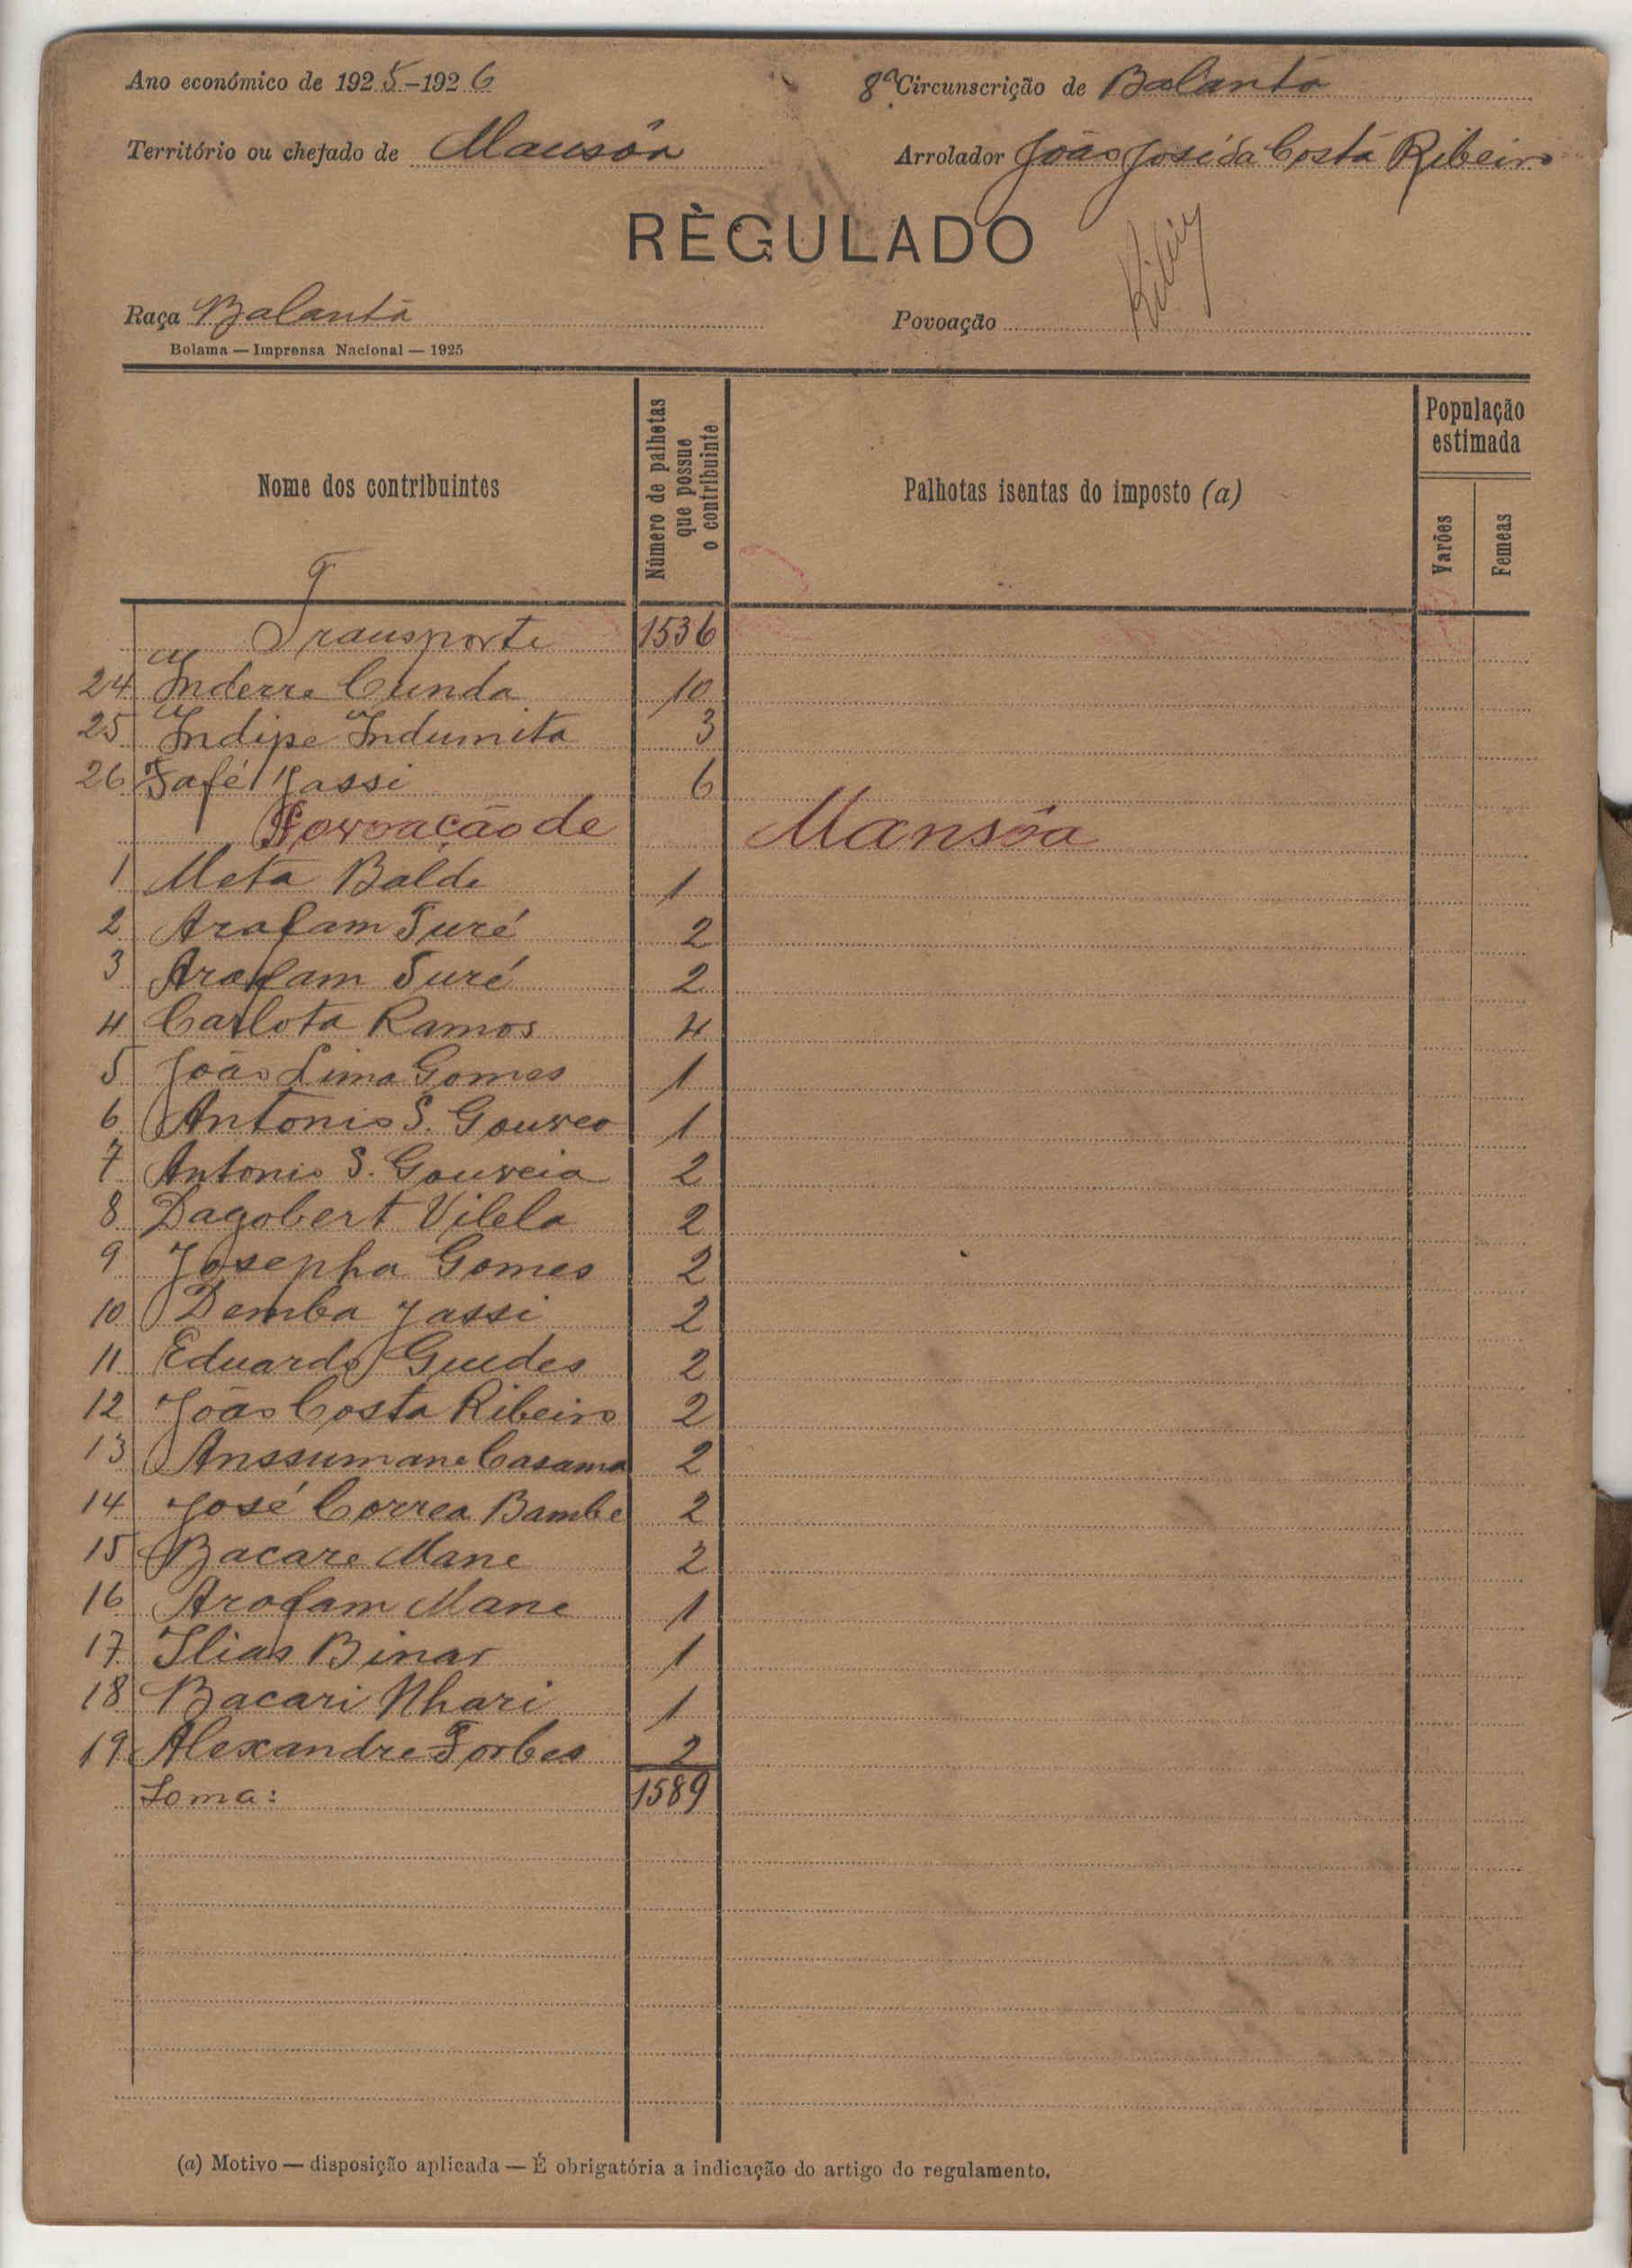 Ano económico de 1925-1926
8ª Circunscrição de Balanta
Território ou chefado de Mansôa
Arrolador João José da Costa Ribeiro
RÈGULADO
Raça Balanta
Povoação
Bolama — Imprensa Nacional — 1925
Nome dos contribuintes
Número de palhotas que possue o contribuinte
Palhotas isentas do imposto (a)
População estimada
Varões
Femeas
Transporte 1536
24 Inderre Cunda 10
25 Indipe Indumita 3
26 Fafé Jassi 6
Povoação de Mansôa
1 Meta Balde 1
2 Arafam Turé 2
3 Arafam Turé 2
4 Carlota Ramos 4
5 João Lima Gomes 1
6 Antonio S. Gouveo 1
7 Antonio S. Gouveia 2
8 Dagobert Vilela 2
9 Josepha Gomes 2
10 Demba Jassi 2
11 Eduardo Guedes 2
12 João Costa Ribeiro 2
13 Anssumane Casama 2
14 José Correa Bambe 2
15 Bacare Mane 2
16 Arofam Mane 1
17 Ilias Binar 1
18 Bacari Nhari 1
19 Alexandre Forbes 2
Soma: 1589
(a) Motivo — disposição aplicada — É obrigatória a indicação do artigo do regulamento.